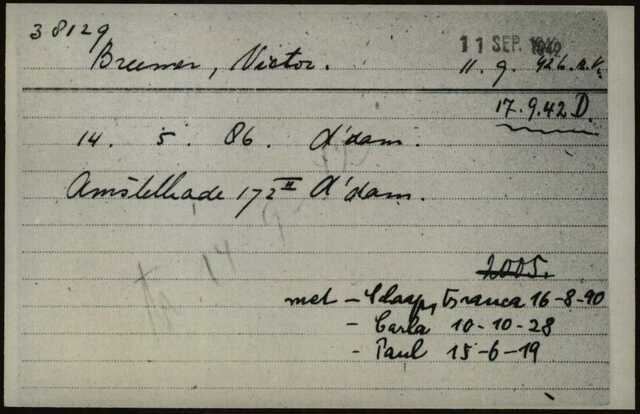 38129
11 SEP. 1942
Breemer, Victor.
11. 9. 42
17.9.42 D.
14. 5. 86. A'dam.
Amstelkade 172 II A'dam.
2005.
met - Schaap, Branca 16-8-90
- Carla 10-10-28
- Paul 15-6-19